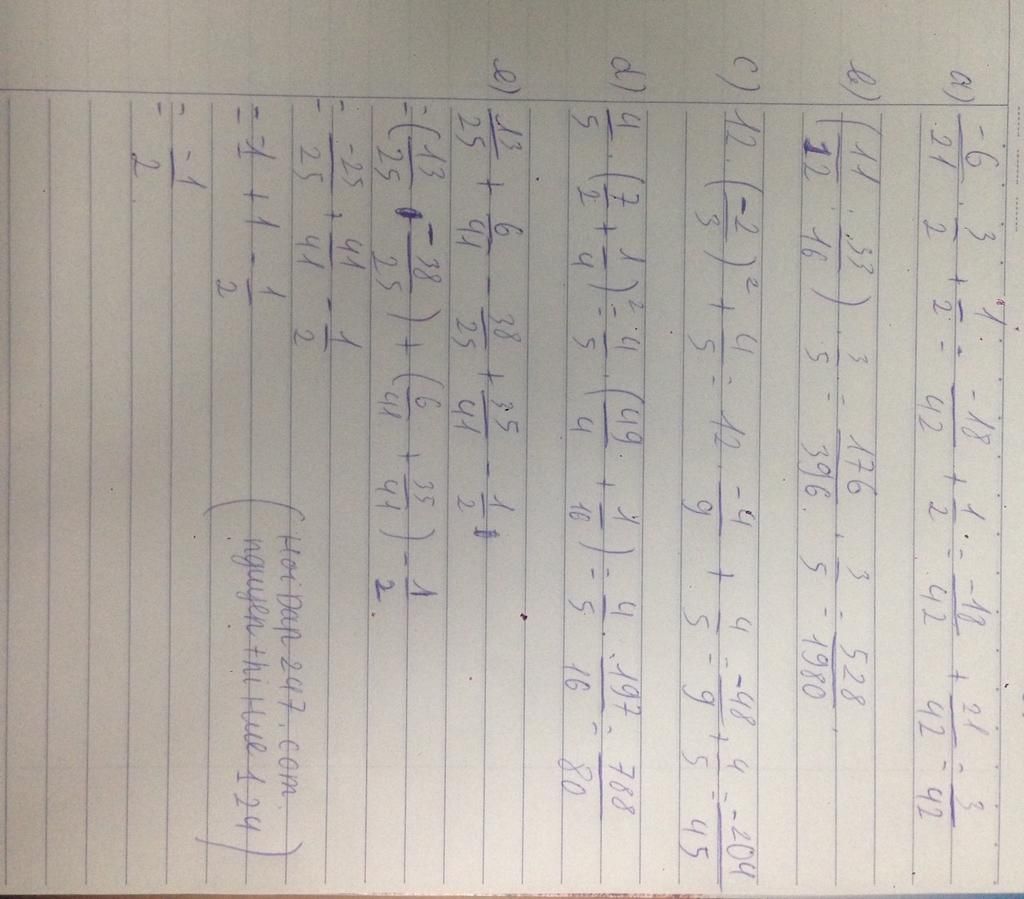 a) -6/21 . 3/2 + 1/2 = -18/42 + 1/2 = -18/42 + 21/42 = 3/42
b) (11/12 : 33/16) . 3/5 = 176/396 . 3/5 = 528/1980
c) 12 . (-2/3)² + 4/5 = 12 . -4/9 + 4/5 = -48/9 + 4/5 = -204/45
d) 4/5 . (7/2 + 1/4)² = 4/5 . (49/4 + 1/16) = 4/5 . 197/16 = 788/80
e) 13/25 + 6/41 - 38/25 + 35/41 - 1/2
= (13/25 + -38/25) + (6/41 + 35/41) - 1/2
= -25/25 + 41/41 - 1/2
= -1 + 1 - 1/2
= -1/2
(Hoidap247.com.
nguyenthihue124)